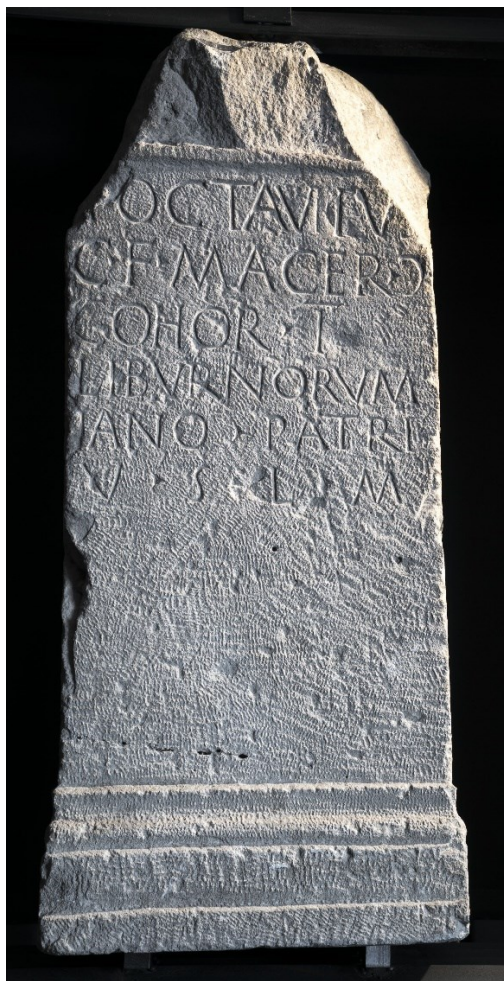 OCTAVIV
C·F·MACER·
COHOR·I
LIBVRNORVM
IANO·PATRI
V·S·L·M